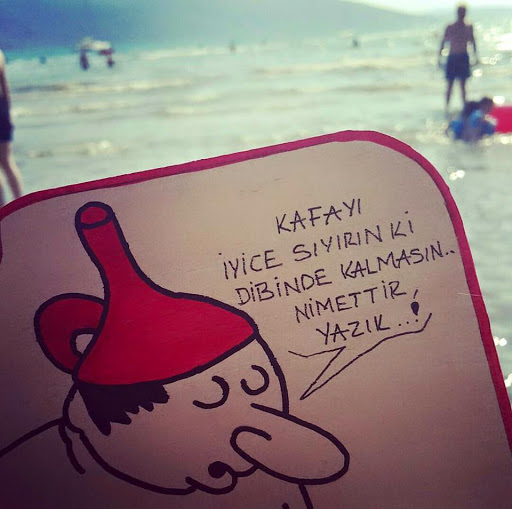 KAFAYI
İYİCE SIYIRIN Kİ
DİBİNDE KALMASIN..
NİMETTİR,
YAZIK...!